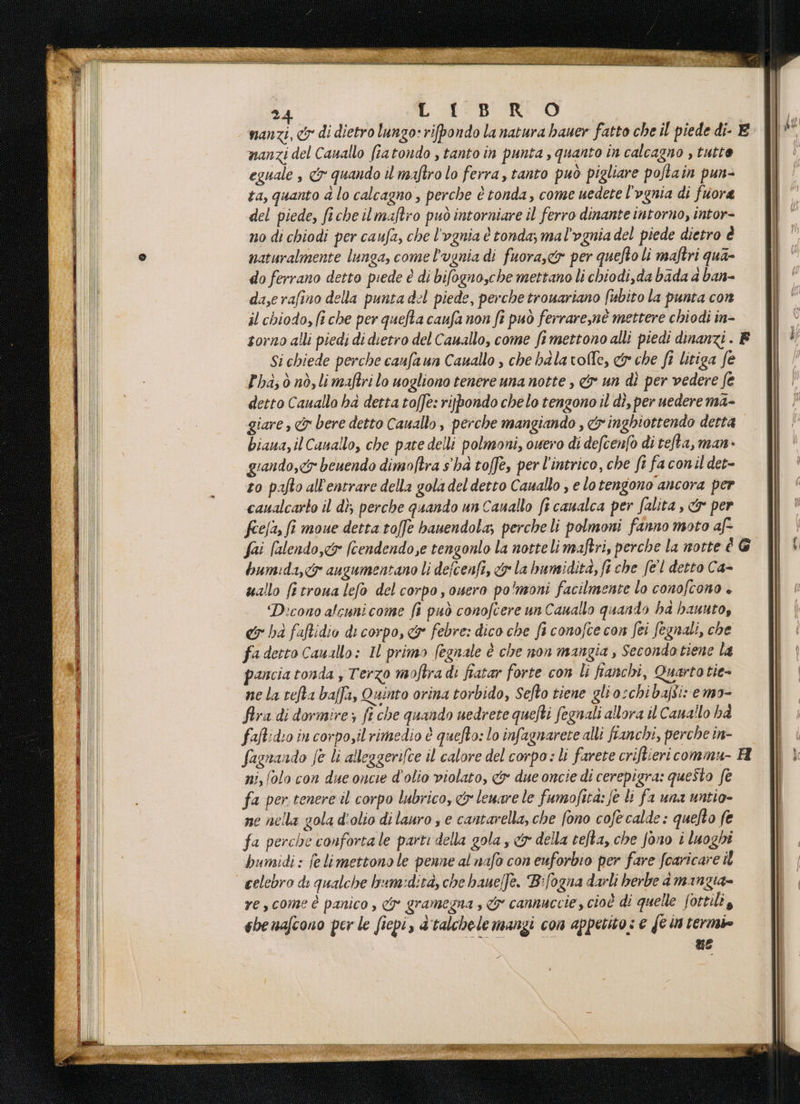 24 LIBRO
nanzi, & di dietro lungo: riſpondo la natura hauer fatto che il piede di- E
nanzi del Cauallo ſia tondo, tanto in punta, quanto in calcagno, tutto
eguale, & quando il maſtro lo ferra, tanto può pigliare poſta in pun-
ta, quanto à lo calcagno, perche è tonda, come uedete l'vgnia di fuora
del piede, ſi che il maſtro può intorniare il ferro dinante intorno, intor-
no di chiodi per cauſa, che l'vgnia è tonda; ma l'vgnia del piede dietro è
naturalmente lunga, come l'vgnia di fuora, & per queſto li maſtri qua-
do ferrano detto piede è di biſogno, che mettano li chiodi, da bada à ban-
da, e raſino della punta del piede, perche trouariano ſubito la punta con
il chiodo, ſi che per queſta cauſa non ſi può ferrare, nè mettere chiodi in-
torno alli piedi di dietro del Cauallo, come ſi mettono alli piedi dinanzi. F
Si chiede perche cauſa un Cauallo, che hà la toſſe, & che ſi litiga ſe
l'hà, ò nò, li maſtri lo uogliono tenere una notte, & un dì per vedere ſe
detto Cauallo hà detta toſſe: riſpondo che lo tengono il dì, per uedere ma-
giare, & bere detto Cauallo, perche mangiando, & inghiottendo detta
biaua, il Cauallo, che pate delli polmoni, ouero di deſcenſo di teſta, man-
giando, & beuendo dimoſtra s'hà toſſe, per l'intrico, che ſi fa con il det-
to paſto all'entrare della gola del detto Cauallo, e lo tengono ancora per
caualcarlo il dì, perche quando un Cauallo ſi caualca per ſalita, & per
ſceſa, ſi moue detta toſſe hauendola, perche li polmoni fanno moto aſ-
ſai ſalendo, & ſcendendo, e tengonlo la notte li maſtri, perche la notte è G
humida, & augumentano li deſcenſi, & la humidità, ſi che ſe'l detto Ca-
uallo ſi troua leſo del corpo, ouero polmoni facilmente lo conoſcono.
Dicono alcuni come ſi può conoſcere un Cauallo quando hà hauuto,
& hà faſtidio di corpo, & febre: dico che ſi conoſce con ſei ſegnali, che
fa detto Cauallo: Il primo ſegnale è che non mangia, Secondo tiene la
pancia tonda, Terzo moſtra di fiatar forte con li fianchi, Quarto tie-
ne la teſta baſſa, Quinto orina torbido, Seſto tiene gli occhi baſſi: e mo-
ſtra di dormire; ſi che quando uedrete queſti ſegnali allora il Cauallo hà
faſtidio in corpo, il rimedio è queſto: lo inſagnarete alli fianchi, perche in-
ſagnando ſe li alleggeriſce il calore del corpo: li farete criſtieri commu- H
ni, ſolo con due oncie d'olio violato, & due oncie di cerepigra: queſto ſe
fa per tenere il corpo lubrico, & leuare le fumoſità: ſe li fa una untio-
ne nella gola d'olio di lauro, e cantarella, che ſono coſe calde: queſto ſe
fa perche conforta le parti della gola, & della teſta, che ſono i luoghi
humidi: ſe li mettono le penne al naſo con euforbio per fare ſcaricare il
celebro di qualche humidità, che haueſſe. Biſogna darli herbe à mangia-
re, come è panico, & gramegna, & cannuccie, cioè di quelle ſottili,
che naſcono per le ſiepi, à talche le mangi con appetito: e ſe in termi-
ne